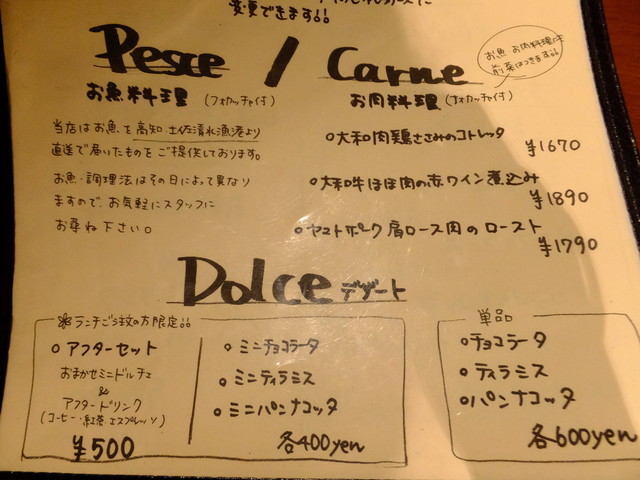 変更できます!!
Pesce / Carne
お魚 お肉料理に
前菜はつきます!!
お魚料理 (フォカッチャ付)
お肉料理 (フォカッチャ付)
当店はお魚を高知 土佐清水漁港より
直送で届いたものをご提供しております。
お魚・調理法はその日によって異なり
ますので、お気軽にスタッフに
お尋ね下さい。
○大和肉鶏ささみのコトレッタ
¥1670
○大和牛ほほ肉の赤ワイン煮込み
¥1890
○ヤマトポーク肩ロース肉のロースト
¥1790
Dolce デザート
ランチご注文の方限定!!
○アフターセット
おまかせミニドルチェ
&
アフタードリンク
(コーヒー・紅茶・エスプレッソ)
¥500
○ミニチョコラータ
○ミニティラミス
○ミニパンナコッタ
各400yen
単品
○チョコラータ
○ティラミス
○パンナコッタ
各600yen